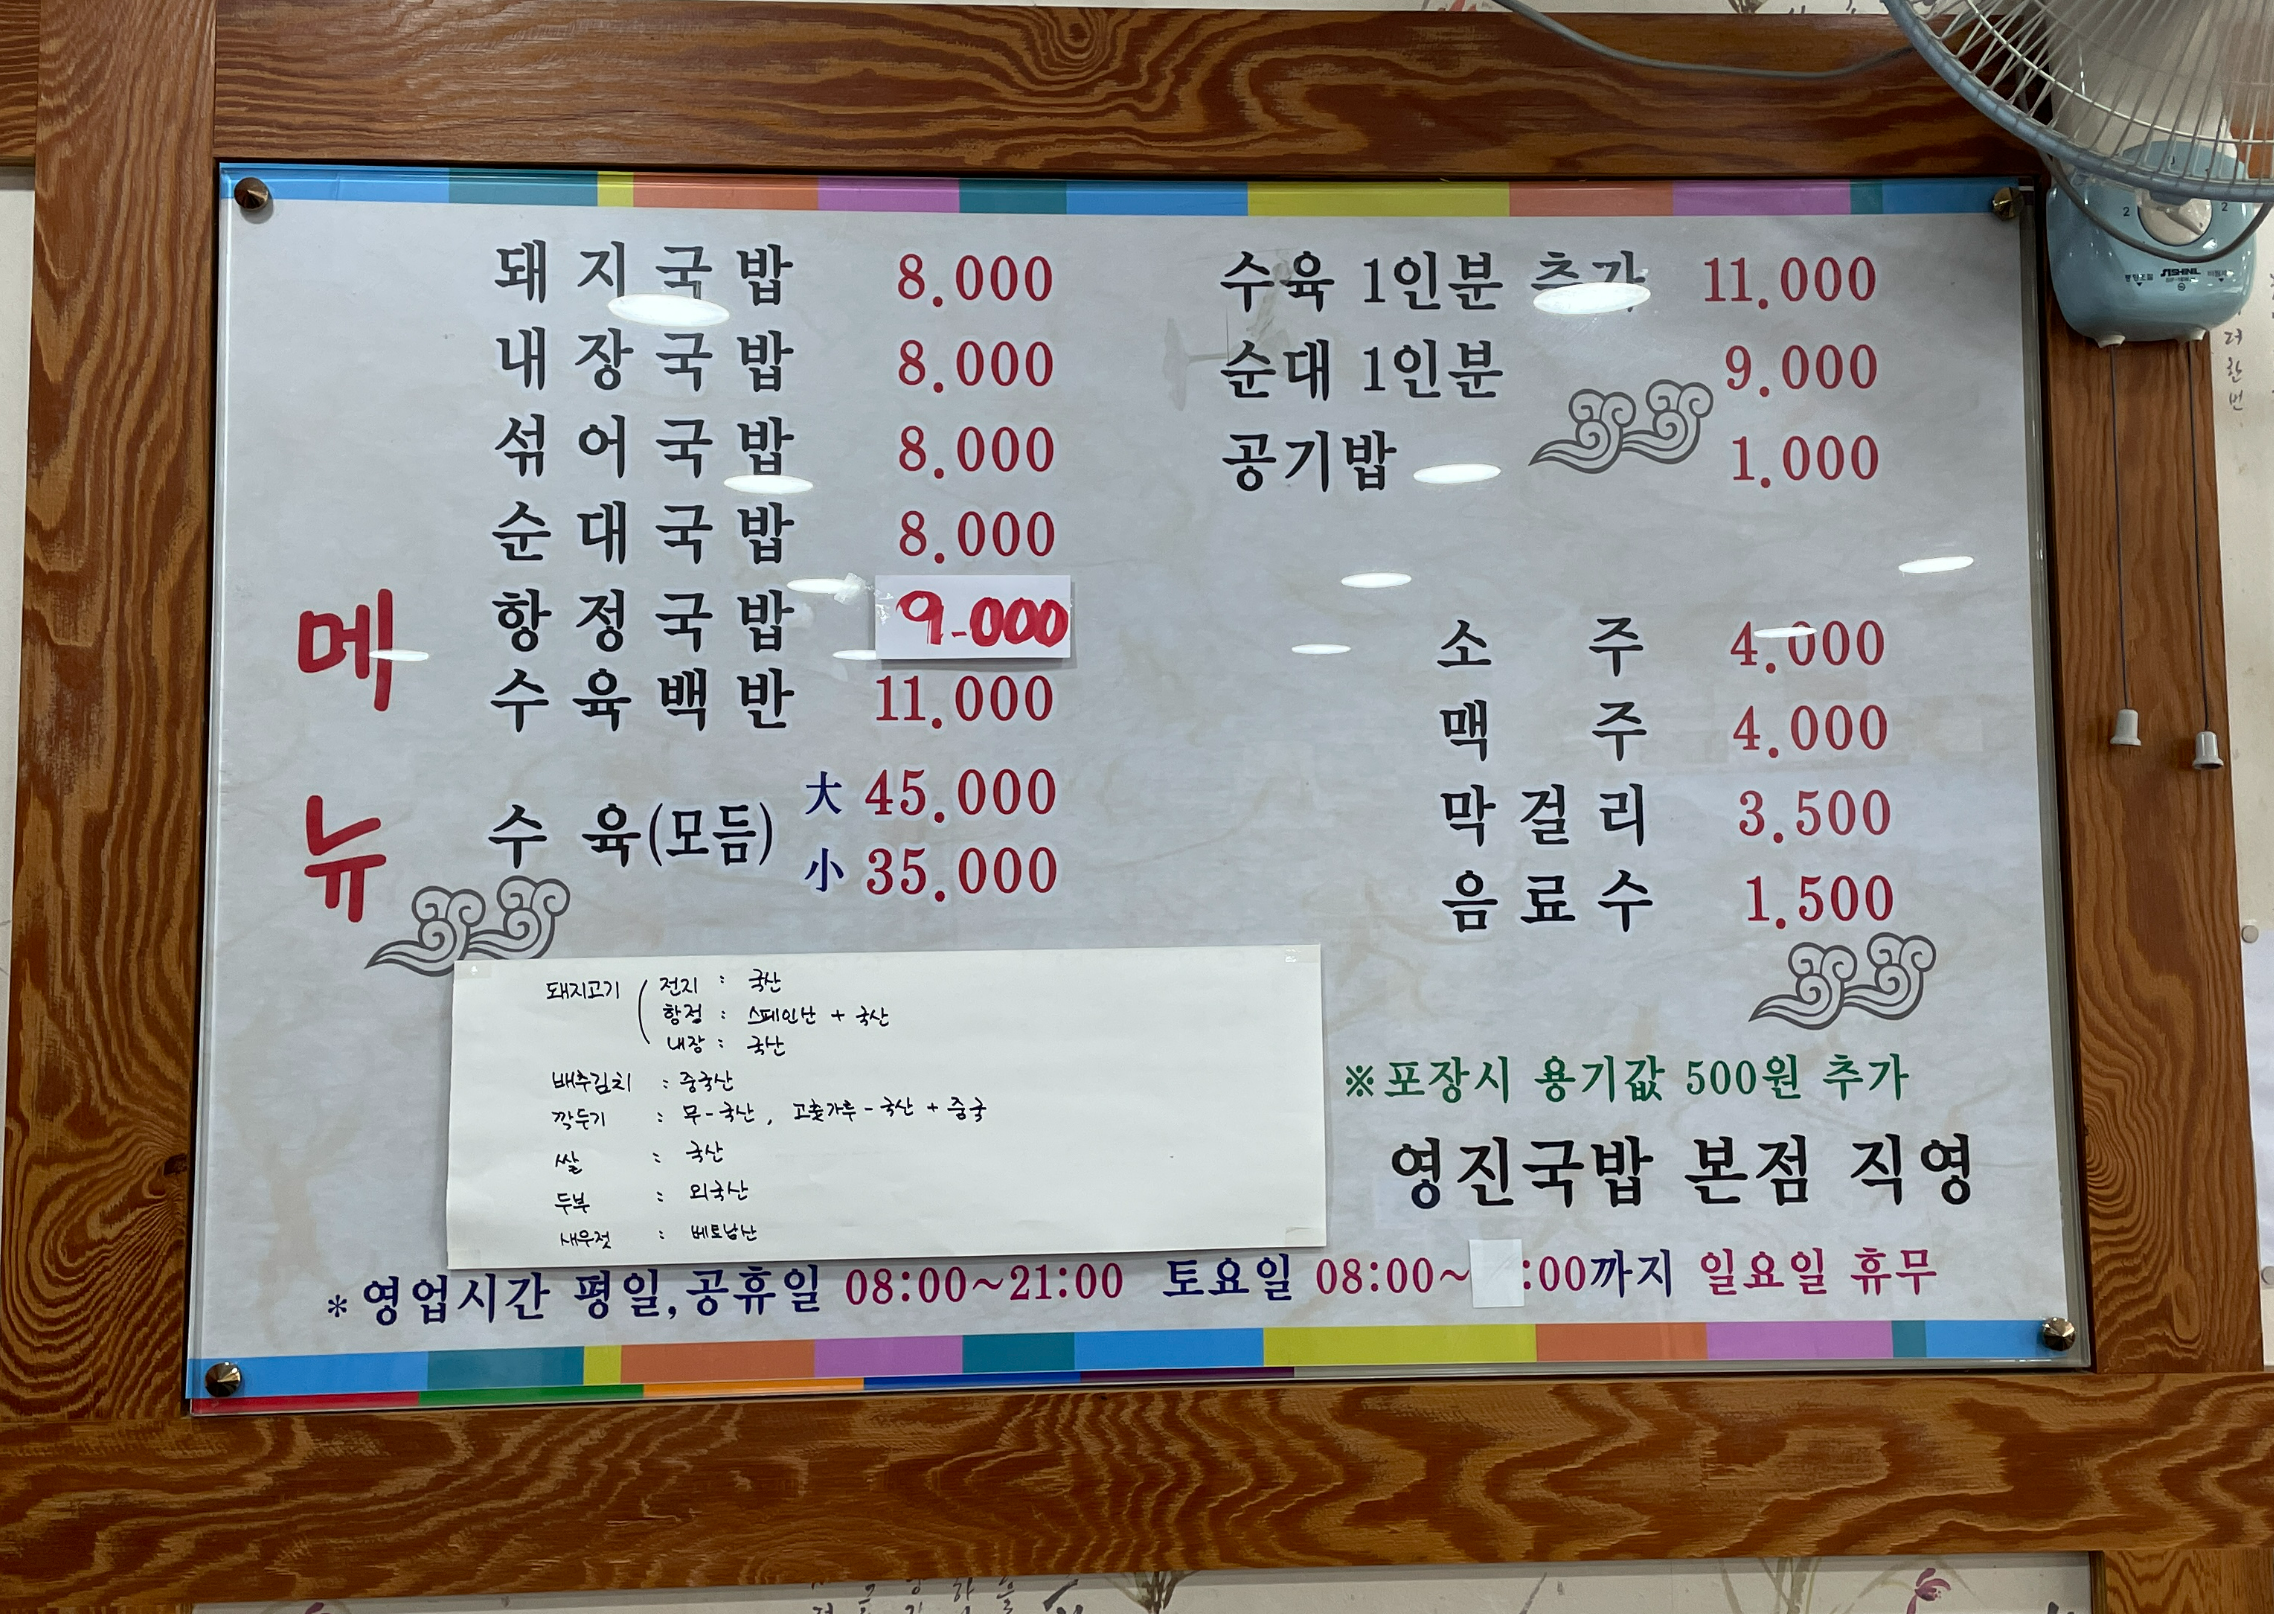 메뉴
돼지국밥 8.000
내장국밥 8.000
섞어국밥 8.000
순대국밥 8.000
항정국밥 9.000
수육백반 11.000
수육(모듬) 大 45.000
小 35.000
수육 1인분 추가 11.000
순대 1인분 9.000
공기밥 1.000
소주 4.000
맥주 4.000
막걸리 3.500
음료수 1.500
돼지고기 ( 전지 : 국산
항정 : 스페인산 + 국산
내장 : 국산
배추김치 : 중국산
깍두기 : 무-국산, 고춧가루-국산 + 중국
쌀 : 국산
두부 : 외국산
새우젓 : 베트남산
※포장시 용기값 500원 추가
영진국밥 본점 직영
*영업시간 평일,공휴일 08:00~21:00 토요일 08:00~ :00까지 일요일 휴무
SHINIL
더
한
번